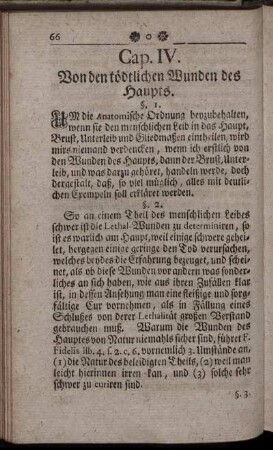 66
Cap. IV.
Von den tödtlichen Wunden des
Haupts.
§. 1.
UM die Anatomische Ordnung beyzubehalten,
wenn sie den menschlichen Leib in das Haupt,
Brust, Unterleib und Gliedmaßen eintheilen, wird
mirs niemand verdencken, wenn ich erstlich von
den Wunden des Haupts, dann der Brust, Unter-
leib, und was darzu gehöret, handeln werde, doch
dergestalt, daß, so viel müglich, alles mit deutli-
chen Exempeln soll erkläret werden.
§. 2.
So an einem Theil des menschlichen Leibes
schwer ist die Lethal-Wunden zu determiniren, so
ist es warlich am Haupt, weil einige schwere gehei-
let, hergegen einige geringe den Tod verursachen,
welches beydes die Erfahrung bezeuget, und schei-
net, als ob diese Wunden vor andern was sonder-
liches an sich haben, wie aus ihren Zufällen klar
ist, in dessen Ansehung man eine fleißige und sorg-
fältige Cur vornehmen, als in Fällung eines
Schlußes von derer Lethalität großen Verstand
gebrauchen muß. Warum die Wunden des
Hauptes von Natur niemahls sicher sind, führet F.
Fidelis lib. 4. s. 2. c. 6. vornemlich 3. Umstände an,
(1) die Natur des beleidigten Theils, (2) weil man
leicht hierinnen irren kan, und (3) solche sehr
schwer zu curiren sind.
§. 3.